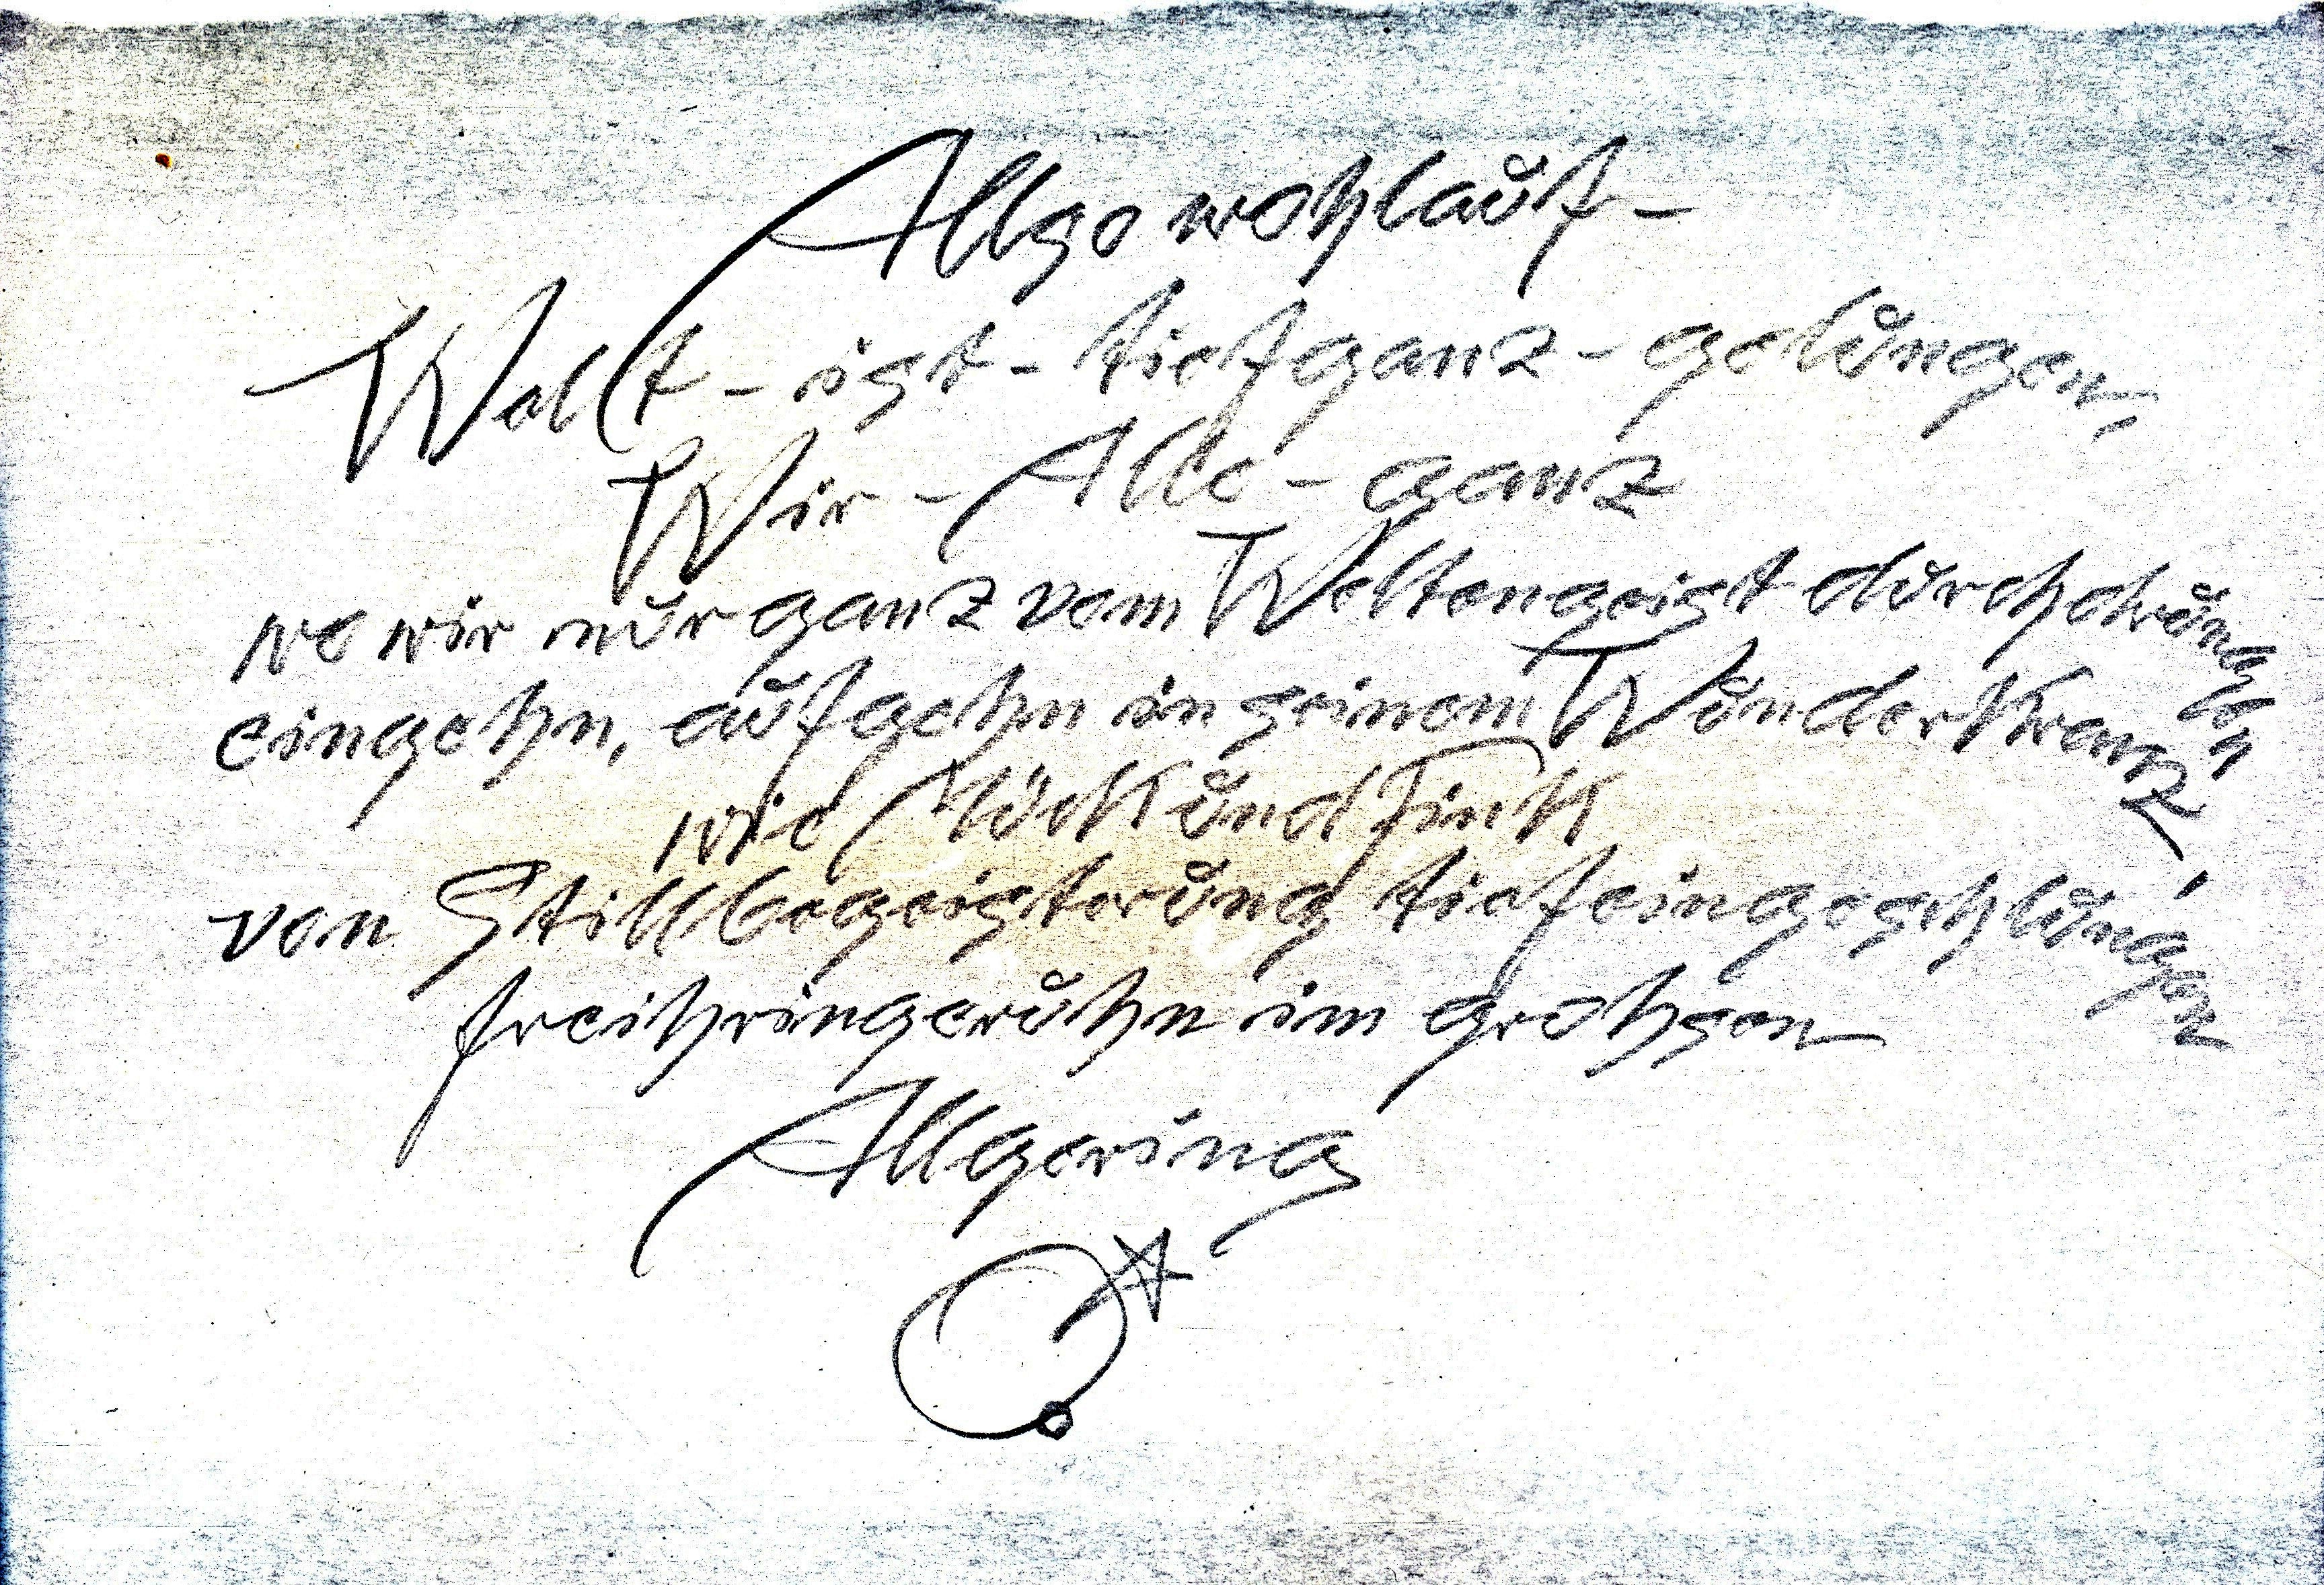 Allso wohlauf -
Welt - ist - tiefganz - gelungen -,
Wir - Alle - ganz
wo wir nur ganz vom Weltengeist durchdrungen
eingehn, aufgehn in seinem WunderKranz,
wie Mück und Fink
von Stillbegeisterung tiefeingeschlungen
freihringeruhn im grohsen
Allgering